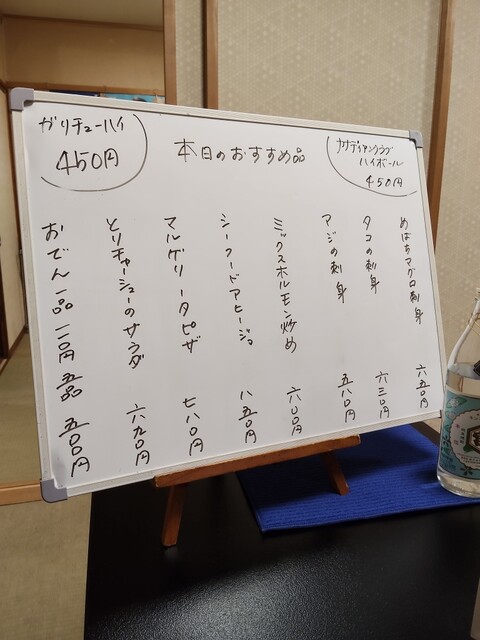 ガリチューハイ
450円
本日のおすすめ品
カナディアンクラブ
ハイボール
450円
めばちマグロ刺身 六五〇円
タコの刺身 六三〇円
アジの刺身 五八〇円
ミックスホルモン炒め 六〇〇円
シーフードアヒージョ 八五〇円
マルゲリータピザ 七八〇円
とりチャーシューのサラダ 六九〇円
おでん一品一二〇円 五品 五〇〇円